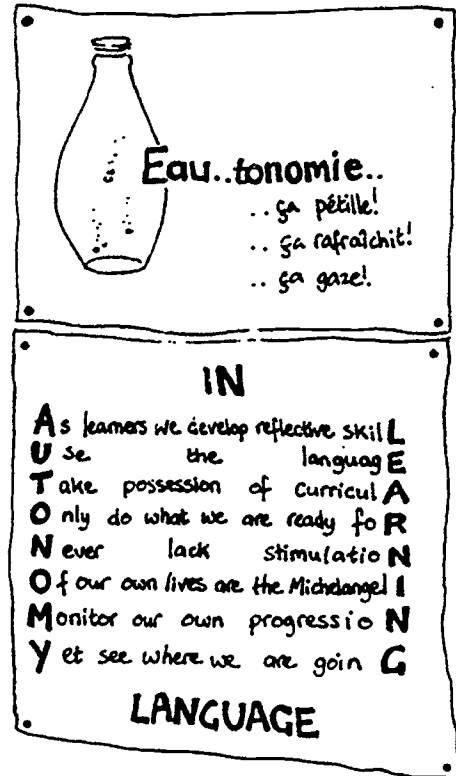 Eau..tonomie..
.. ça pétille!
.. ça rafraîchit!
.. ça gaze!
IN
As learners we develop reflective skilL
Use the languagE
Take possession of curriculA
Only do what we are ready foR
Never lack stimulatioN
Of our own lives are the MichelangelI
Monitor our own progressioN
Yet see where we are goinG
LANGUAGE